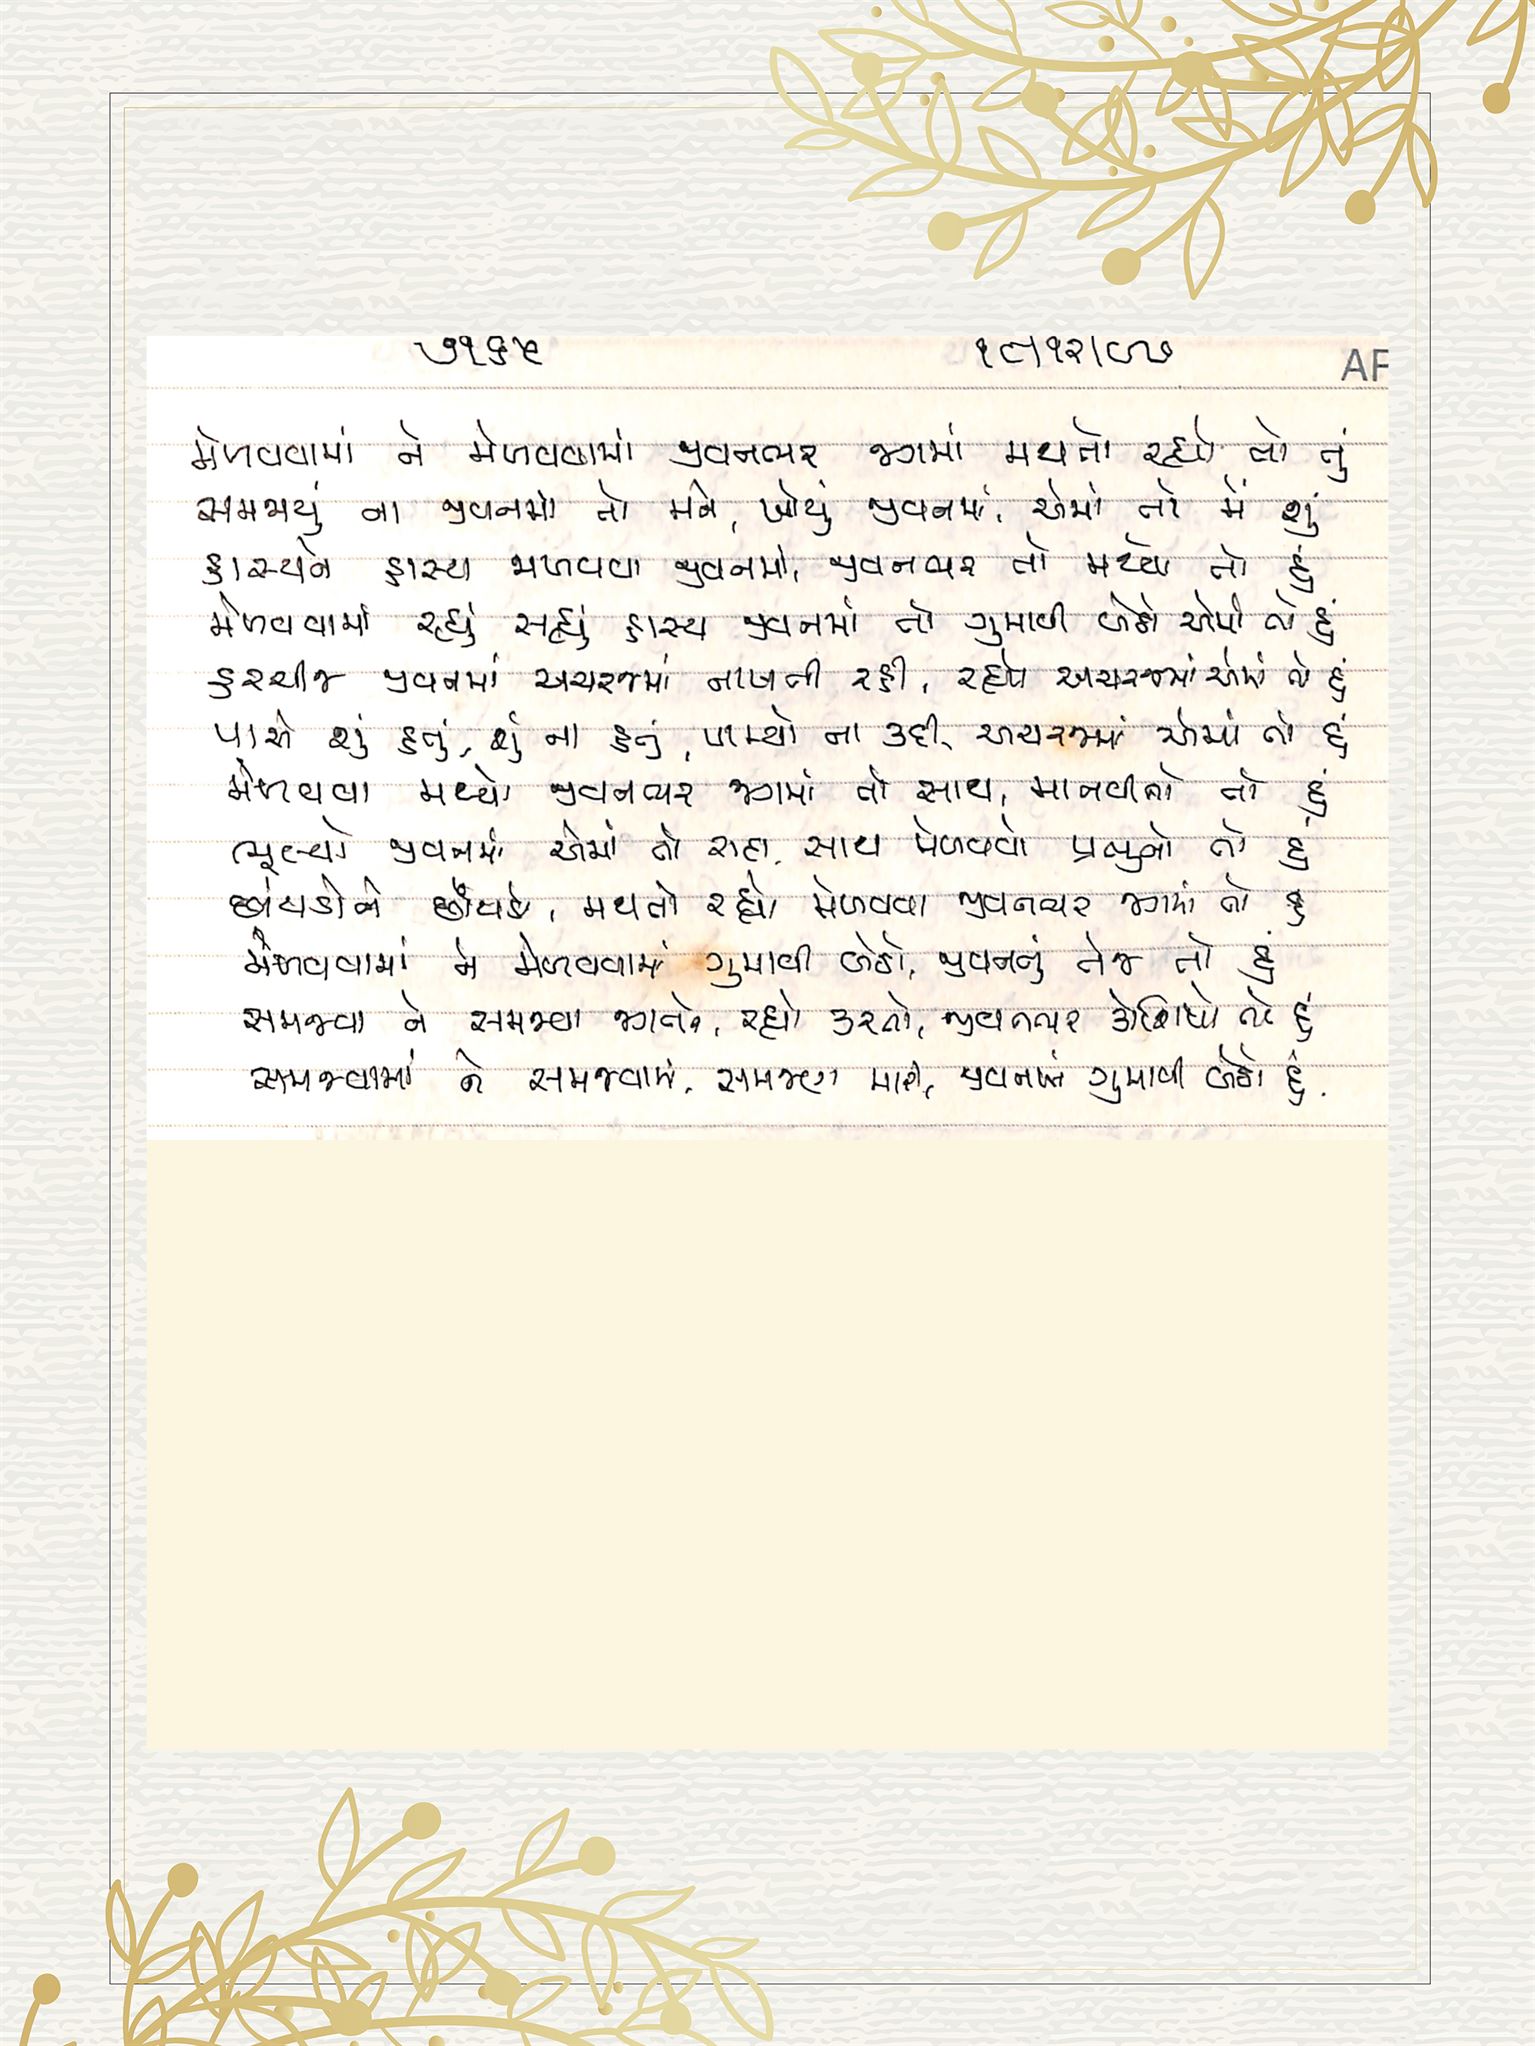 ૭૧૬૫ ૧૯/૧૨/૯૭ AF
મેળવવામાં ને મેળવવામાં જીવનભર જગમાં મથતો રહ્યો તો હું
સમજાયું ના જીવનમાં તો મને, ખોયું જીવનમાં, એમાં તો મેં શું
હાસ્યને હાસ્ય મળવવા જીવનમાં, જીવનભર તો મથ્યો તો હું
મેળવવામાં રહ્યું સહ્યું હાસ્ય જીવનમાં તો ગુમાવી બેઠો એમાં તો હું
હરચીજ જીવનમાં અચરજમાં નાખતી રહી, રહ્યો અચરજમાં એમાં તો હું
પાસે શું હતું, શું ના હતું, પામ્યો ના કદી, અચરજમાં એમાં તો હું
મેળવવા મથ્યો જીવનભર જગમાં તો સાથ, માનવીનો તો હું
ભૂલ્યો જીવનમાં એમાં તો સદા, સાથ મેળવવો પ્રભુનો તો હું
મથતો રહ્યો મેળવવા જીવનભર જગમાં તો હું
મેળવવામાં ને મેળવવામાં ગુમાવી બેઠો, જીવનનું તેજ તો હું
સમજવા ને સમજવા જગને, રહ્યો કરતો, જીવનભર કોશિશો તો હું
સમજવામાં ને સમજવામાં, સમજણ મારી, જીવનમાં ગુમાવી બેઠો હું.